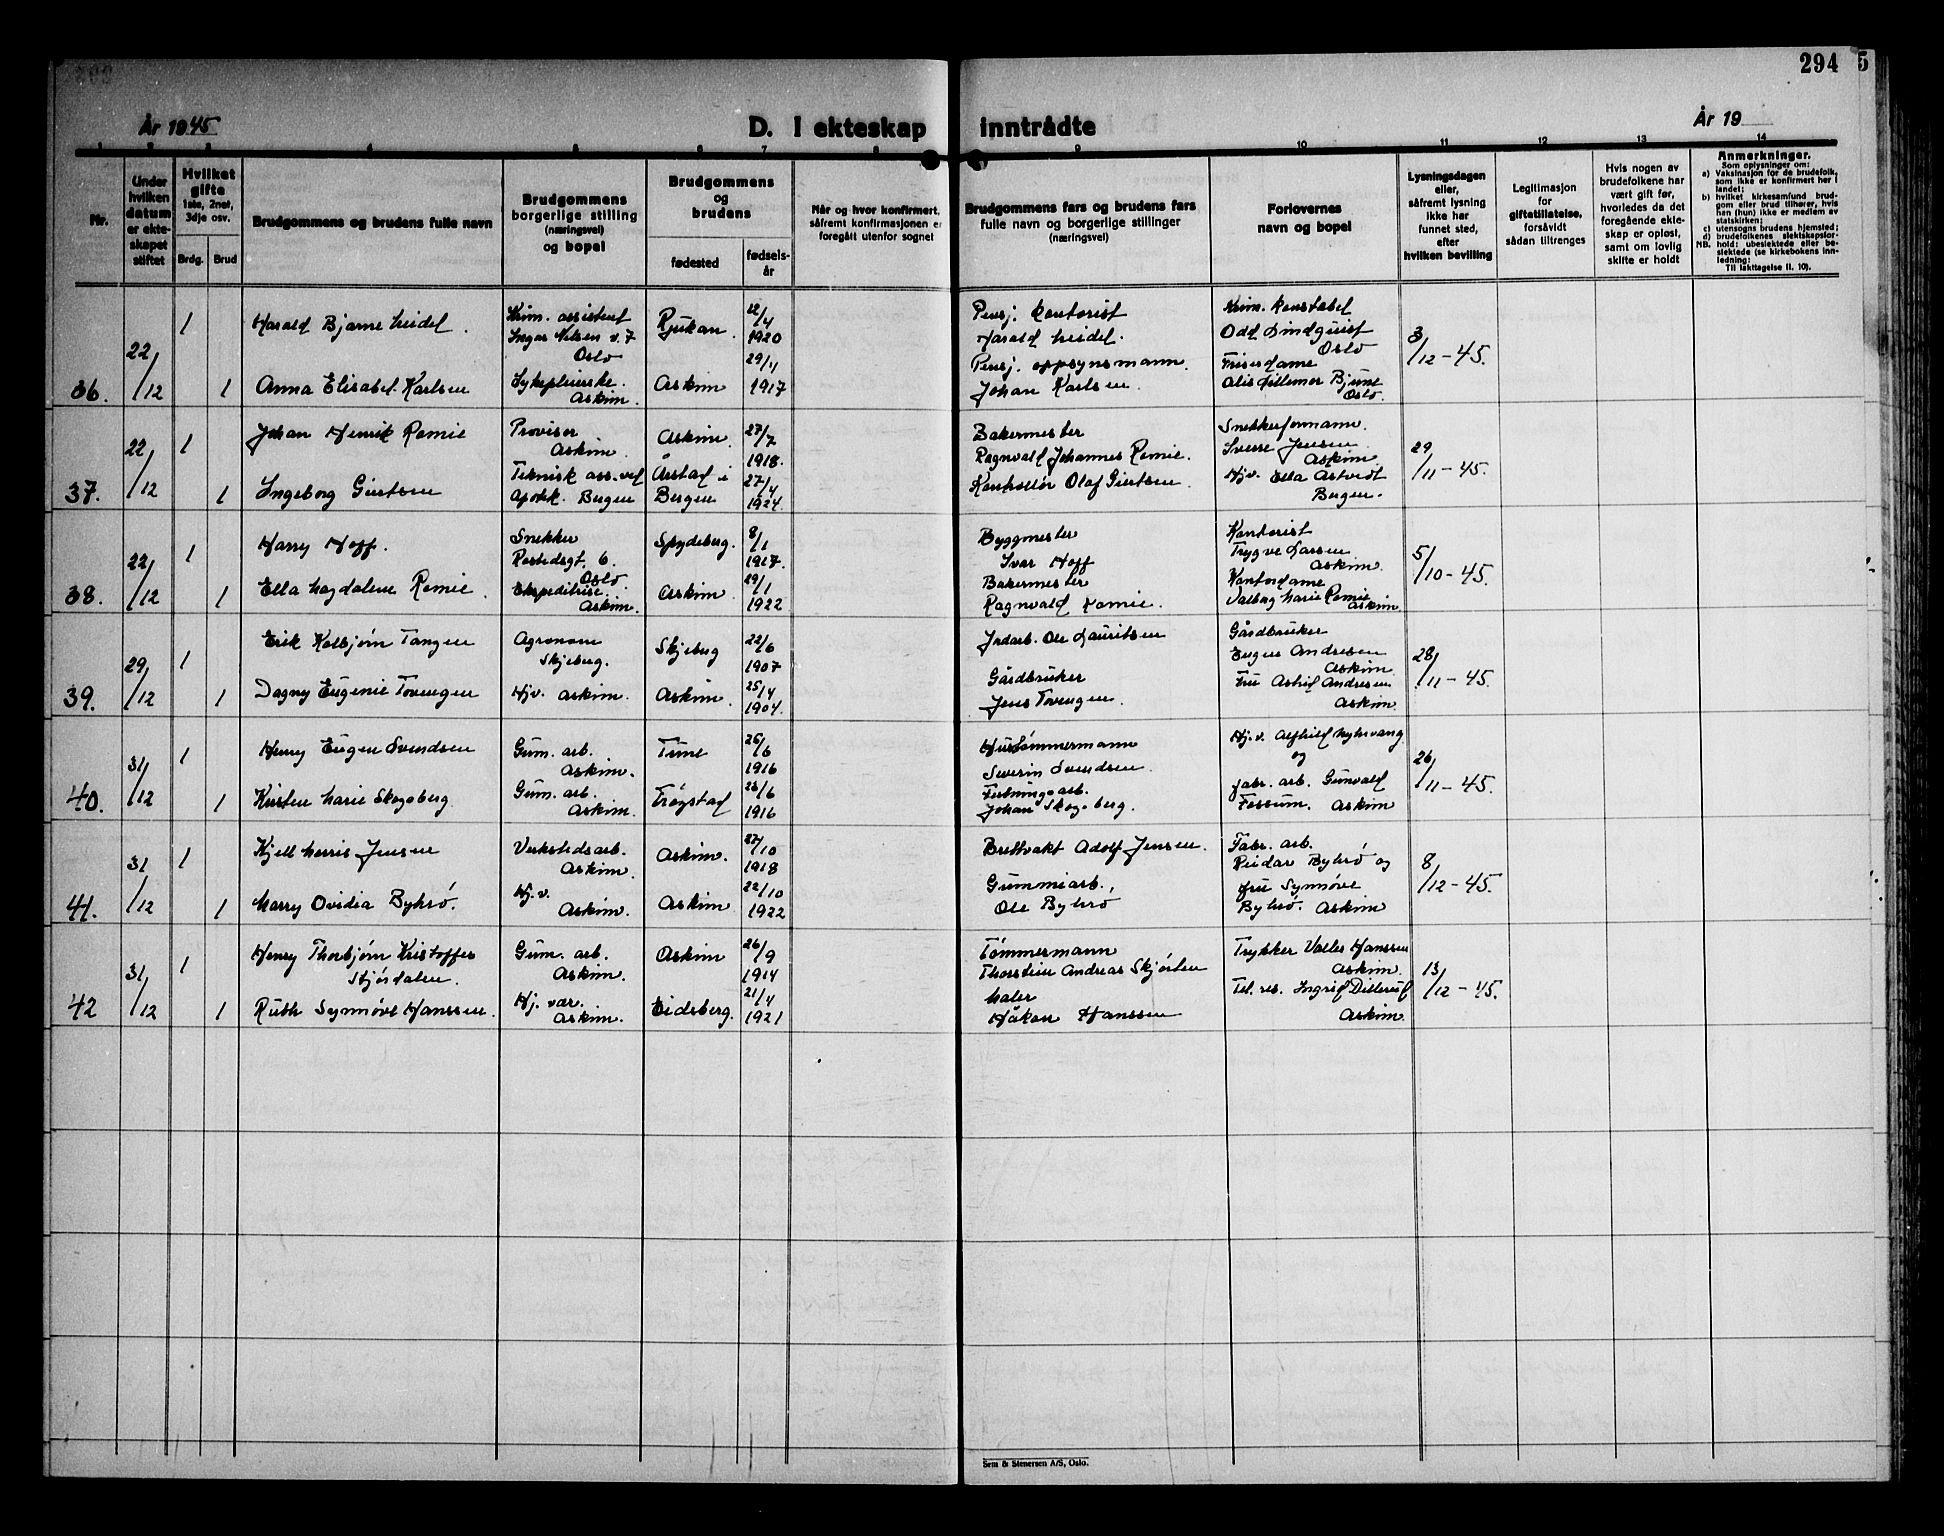 294 5
År 1945
D. I ekteskap inntrådte
År 19
1 2 3 4 5 6 7 8 9 10 11 12 13 14
Nr.
Under hvilken datum er ekteskapet stiftet
Hvilket gifte
1ste, 2net, 3dje osv.
Brdg. Brud
Brudgommens og brudens fulle navn
Brudgommens borgerlige stilling (næringsvei) og bopel
Brudgommens og brudens
fødested
fødselsår
Når og hvor konfirmert, såfremt konfirmasjonen er foregått utenfor sognet
Brudgommens fars og brudens fars fulle navn og borgerlige stillinger (næringsvei)
Forlovernes navn og bopel
Lysningsdagen eller, såfremt lysning ikke har funnet sted, efter hvilken bevilling
Legitimasjon for giftetillatelse, forsåvidt sådan tiltrenges
Hvis nogen av brudefolkene har vært gift før, hvorledes da det foregående ekteskap er opløst, samt om lovlig skifte er holdt
Anmerkninger.
Som oplysninger om:
a) Vaksinasjon for de brudefolk, som ikke er konfirmert her i landet;
b) hvilket kirkesamfund brudgom eller brud tilhører, hvis han (hun) ikke er medlem av statskirken;
c) utensogns brudens hjemsted;
d) brudefolkenes slektskapsforhold: ubeslektede eller beslektede (se kirkebokens innledning:
NB.
Til iakttagelse II. 10).
36. 22/12 1 Harald Bjarne Heidel. Krim. assistent Ingar Nilsen v. 7 Oslo Rjukan 12/4 1920 Pensj. kontorist Harald Heidel. Krim. konstabel Odd Lindquist Oslo 3/12-45.
1 Anna Elisabet Karlsen Sykepleierske. Askim. Askim 29/11 1917 Pensj. oppsynsmann. Johan Karlsen. Frisørdame Oslo.
37. 22/12 1 Johan Henrik Ramie Provisor Askim. Askim. 27/7 1918. Bakermester Ragnvald Johannes Ramie. Snekkerformann. Sverre Jensen Askim 29/11-45.
1 Ingeborg Giertsen Teknisk ass. ved apotek. Bergen Årstad i Bergen 27/4 1924. Kontrollør Olaf Giertsen Hjv. Ella Astvedt Bergen.
38. 22/12 1 Harry Hoff. Snekker Oslo Spydeberg. 8/1 1917. Byggmester Ivar Hoff Kontorist Trygve Larsen Askim. 5/10-45.
1 Ella Magdalene Ramie. Ekspeditrise. Askim. Askim 29/1 1922 Bakermester Ragnvald Ramie. Kontordame Valborg Marie Ramie Askim
39. 29/12 1 Erik Kolbjørn Tangen Agronom Skjeberg. Skjeberg 22/6 1907 Jrdarb. Ole Lauritsen Gårdbruker Eugen Andresen Askim 28/11-45.
1 Dagny Eugenie Tovengen Hjv. Askim. Askim. 25/4 1904. Gårdbruker Jens Tovengen. Fru Astrid Andresen Askim.
40. 31/12 1 Henry Eugen Svendsen Gum. arb. Askim. Tune 26/6 1916 Hustømmermann Severin Svendsen. Hj.v. Alfhild Myhrvang og 26/11-45.
1 Kirsten Marie Skogsberg Gum. arb. Askim. Trøgstad 28/6 1916 Festningsarb. Johan Skogsberg. fabr. arb. Gunvald Fossum. Askim
41. 31/12 1 Kjell Harris Jensen Verkstedsarb. Askim. Askim. 27/10 1918 Brettvakt Adolf Jensen. Fabr. arb. Reidar Byhrø og 8/12-45.
1 Marry Ovidia Byhrø. Hj.v. Askim. Askim 22/10 1922 Gummiarb. Ole Byhrø fru Synnøve Byhrø. Askim
42 31/12 1 Henry Thorbjørn Kristoffer Skjørdalen. Gum. arb. Askim. Askim 26/9 1914 Tømmermann Thorstein Andreas Skjørten Trykker Valter Hanssen Askim. 13/12-45.
1 Ruth Synnøve Hanssen. Hj. vær. Askim. Eidsberg. 21/4 1921 Maler Håkon Hanssen Ingrid Dillerud Askim.
Sem & Stenersen A/S, Oslo.